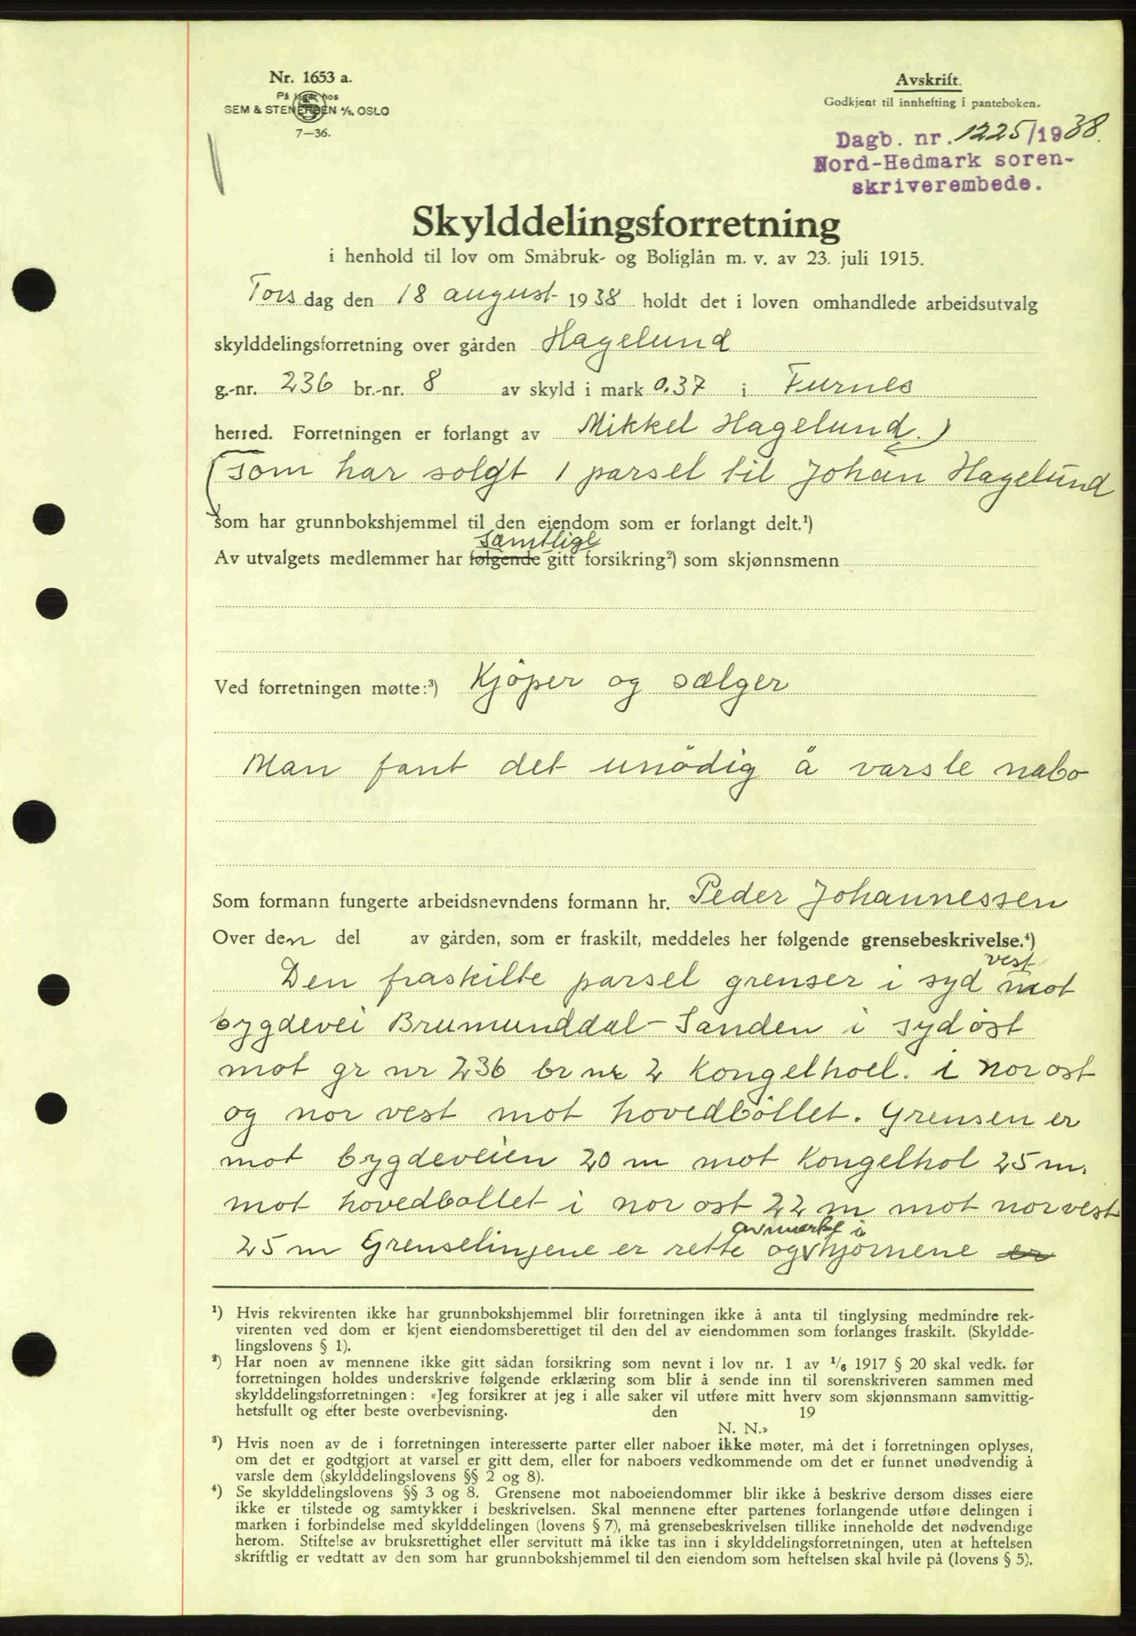 Nr. 1653 a.
På lager hos
SEM & STENERSEN A/S, OSLO
7—36.
Avskrift.
Godkjent til innhefting i panteboken.
Dagb. nr. 1225/1938.
Nord-Hedmark soren-
skriverembede.
Skylddelingsforretning
i henhold til lov om Småbruk- og Boliglån m. v. av 23. juli 1915.
Torsdag den 18 august 1938 holdt det i loven omhandlede arbeidsutvalg
skylddelingsforretning over gården Hagelund
g.-nr. 236 br.-nr. 8 av skyld i mark 0.37 i Furnes
herred. Forretningen er forlangt av Mikkel Hagelund.)
(som har solgt 1 parsel til Johan Hagelund
som har grunnbokshjemmel til den eiendom som er forlangt delt.¹)
samtlige
Av utvalgets medlemmer har følgende gitt forsikring²) som skjønnsmenn
Ved forretningen møtte:³) Kjöper og sælger
Man fant det unödig å varsle nabo
Som formann fungerte arbeidsnevndens formann hr. Peder Johannessen
Over den del av gården, som er fraskilt, meddeles her følgende grensebeskrivelse.⁴)
vest
Den fraskilte parsel grenser i syd mot
bygdevei Brumunddal - Sanden i sydöst
mot gr nr 236 br nr 2 Kongelhoel. i nor ost
og nor vest mot hovedböllet. Grensen er
mot bygdeveien 20 m mot Kongelhol 25 m.
mot hovedbollet i nor ost 22 m mot nor vest
avmerkt i
25 m Grenselinjene er rette og hjörnene er
¹) Hvis rekvirenten ikke har grunnbokshjemmel blir forretningen ikke å anta til tinglysing medmindre rek-
virenten ved dom er kjent eiendomsberettiget til den del av eiendommen som forlanges fraskilt. (Skyldde-
lingslovens § 1).
²) Har noen av mennene ikke gitt sådan forsikring som nevnt i lov nr. 1 av 1/6 1917 § 20 skal vedk. før
forretningen holdes underskrive følgende erklæring som blir å sende inn til sorenskriveren sammen med
skylddelingsforretningen: «Jeg forsikrer at jeg i alle saker vil utføre mitt hverv som skjønnsmann samvittig-
hetsfullt og efter beste overbevisning. den 19
N. N.»
³) Hvis noen av de i forretningen interesserte parter eller naboer ikke møter, må det i forretningen oplyses,
om det er godtgjort at varsel er gitt dem, eller for naboers vedkommende om det er funnet unødvendig å
varsle dem (skylddelingslovens §§ 2 og 8).
⁴) Se skylddelingslovens §§ 3 og 8. Grensene mot naboeiendommer blir ikke å beskrive dersom disses eiere
ikke er tilstede og samtykker i beskrivelsen. Skal mennene efter partenes forlangende utføre delingen i
marken i forbindelse med skylddelingen (lovens § 7), må grensebeskrivelsen tillike inneholde det nødvendige
herom. Stiftelse av bruksrettighet eller servitutt må ikke tas inn i skylddelingsforretningen, uten at heftelsen
skriftlig er vedtatt av den som har grunnbokshjemmel til den eiendom som heftelsen skal hvile på (lovens § 5).